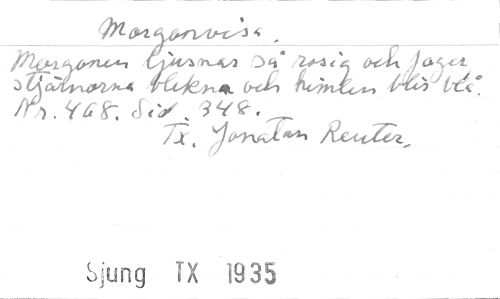 Morgonvisa.
Morgonen ljusnar så rosig och fager
stjärnorna blekna och himlen blir blå.
Nr. 468. Sid. 348.
Tx. Jonatan Reuter.
Sjung TX 1935